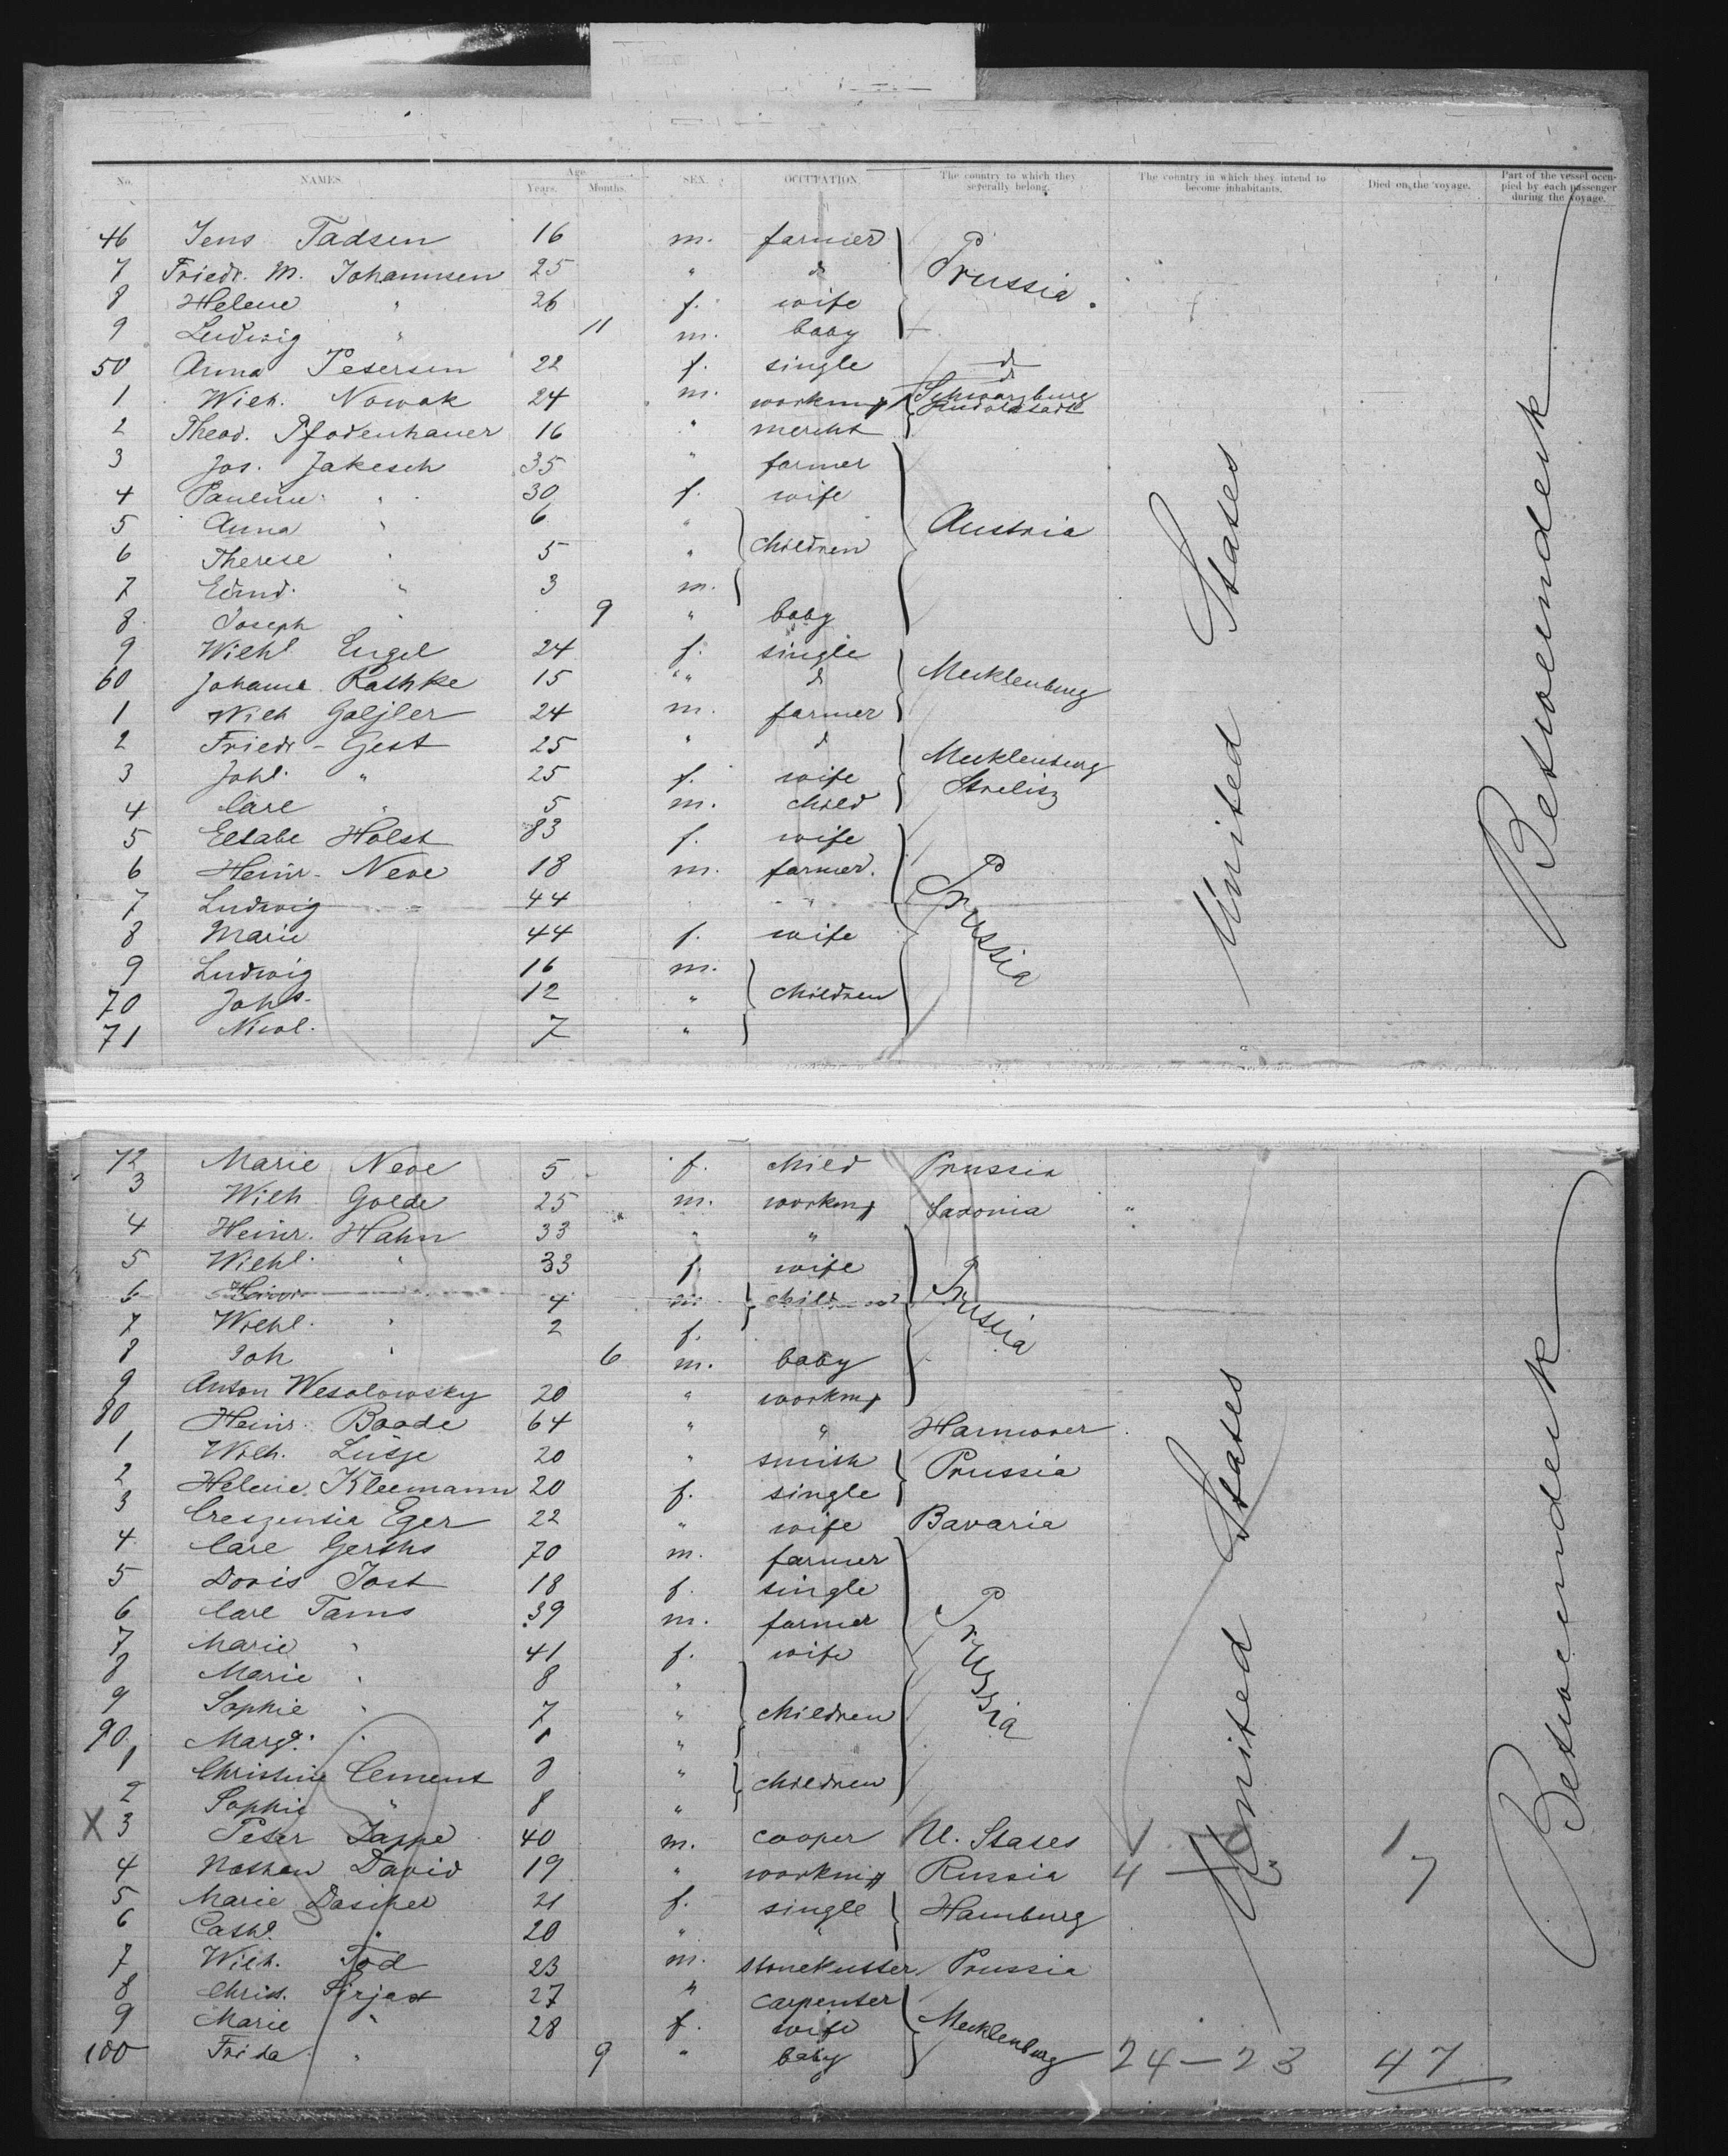 No. NAMES. Age. Years. Months. SEX. OCCUPATION The country to which they severally belong. The country in which they intend to become inhabitants. Died on the voyage. Part of the vessel occupied by each passenger during the voyage.
46 Jens Tadsen 16 m. farmer Prussia.
7 Friedr. M. Johannsen 25 " do
8 Helene " 26 f. wife
9 Ludwig " 11 m. baby
50 Anna Petersen 22 f. single do
1 Wilh. Nowak 24 m. workm do
2 Theod. Pfodenhauer 16 " mercht Schwarzburg Rudolstadt
3 Jos. Jakesch 35 " farmer
4 Pauline " 30 f. wife
5 Anna " 6 " children Austria
6 Therese " 5 "
7 Edmd. " 3 m.
8 Joseph " 9 " baby
9 Wilhl Engel 24 f. single
60 Johanna Rathke 15 " do Mecklenburg
1 Wilh 24 m. farmer
2 Friedr. Gest 25 " do
3 Johl. " 25 f. wife Mecklenburg Strelitz
4 Carl " 5 m. child
5 Elsabe Holst 83 f. wife
6 Heinr. Neve 18 m. farmer. Prussia
7 Ludwig " 44 "
8 Marie 44 f. wife
9 Ludwig 16 m.
70 Johs. 12 " children
71 Nicol. 7 "
United States
Betweendeck
72 Marie Neve 5 f. child Prussia
3 Wilh Golde 25 m. workm Saxonia "
4 Heinr. Hahn 33 " "
5 Wilhl. " 33 f. wife
6 Heinr 4 m. children Prussia
7 Wilhl. " 2 f.
8 Joh " 6 m. baby
9 Anton Wesolowsky 20 " workm
80 Heinr. Baade 64 " " Hannover
1 Wilh. Lütje 20 " smith Prussia
2 Helene Kleemann 20 f. single
3 Creszentia Eger 22 " wife Bavaria
4 Carl Gerths 70 m. farmer
5 Doris Jost 18 f. single
6 Carl Tams 39 m. farmer Prussia
7 Marie " 41 f. wife
8 Marie " 8 "
9 Sophie " 7 " children
90 Marga. " "
1 Christine Clement 8 " children
2 Sophie " 8 "
X 3 Peter Jappe 40 m. cooper U. States 1 1
4 Nathan David 19 " workm Russia 4 7
5 Marie 21 f. single Hamburg
6 Cathl. " 20 "
7 Wilh. Tod 23 m. stonekutter Prussia
8 Christ. 27 " carpenter
9 Marie " 28 f. wife Mecklenburg
100 Frida " 9 " baby 24 - 23 47
United States
Betweendeck